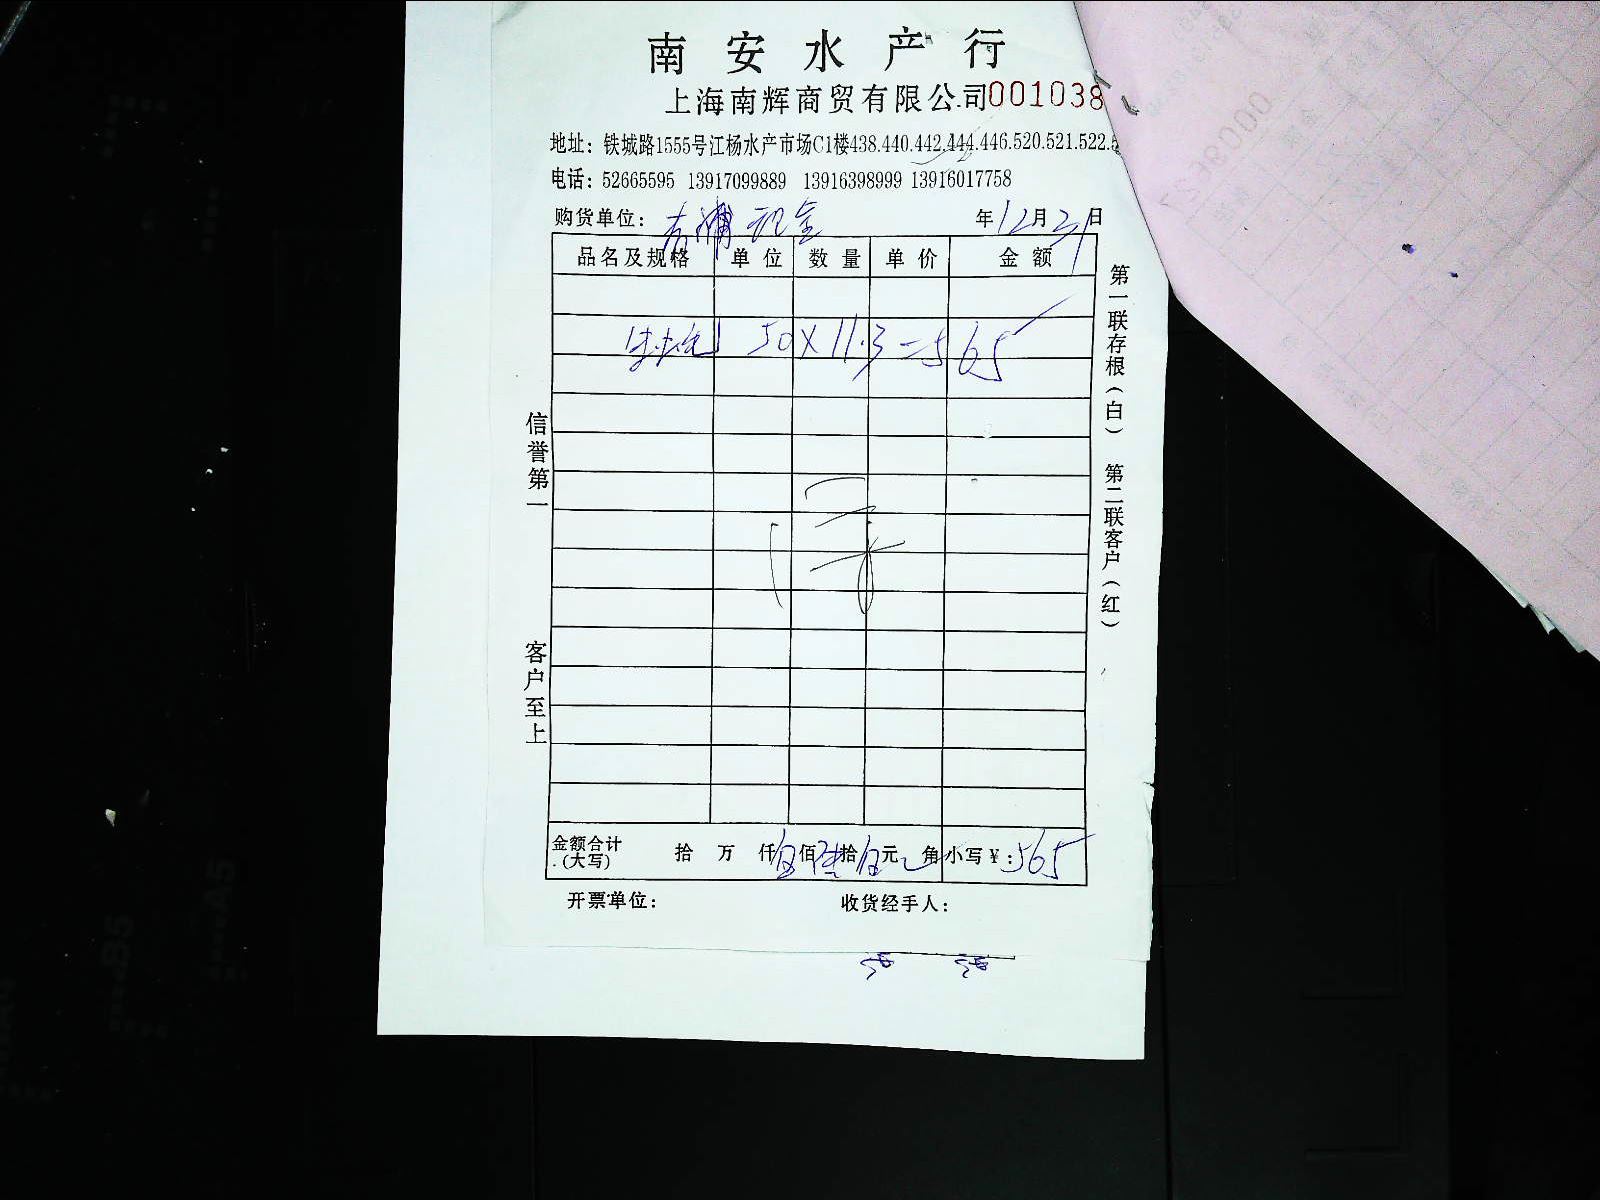 南安水产行
上海南辉商贸有限公司001038
地址：铁城路1555号江杨水产市场C1楼438.440.442.444.446.520.521.522.5
电话：52665595 13917099889 13916398999 13916017758
购货单位： 年12月21日
品名及规格 单位 数量 单价 金额
50×11.3=565
信誉第一
客户至上
第一联存根（白） 第二联客户（红）
金额合计（大写） 拾 万 仟伍佰陆拾伍元 角 小写￥：565
开票单位： 收货经手人：